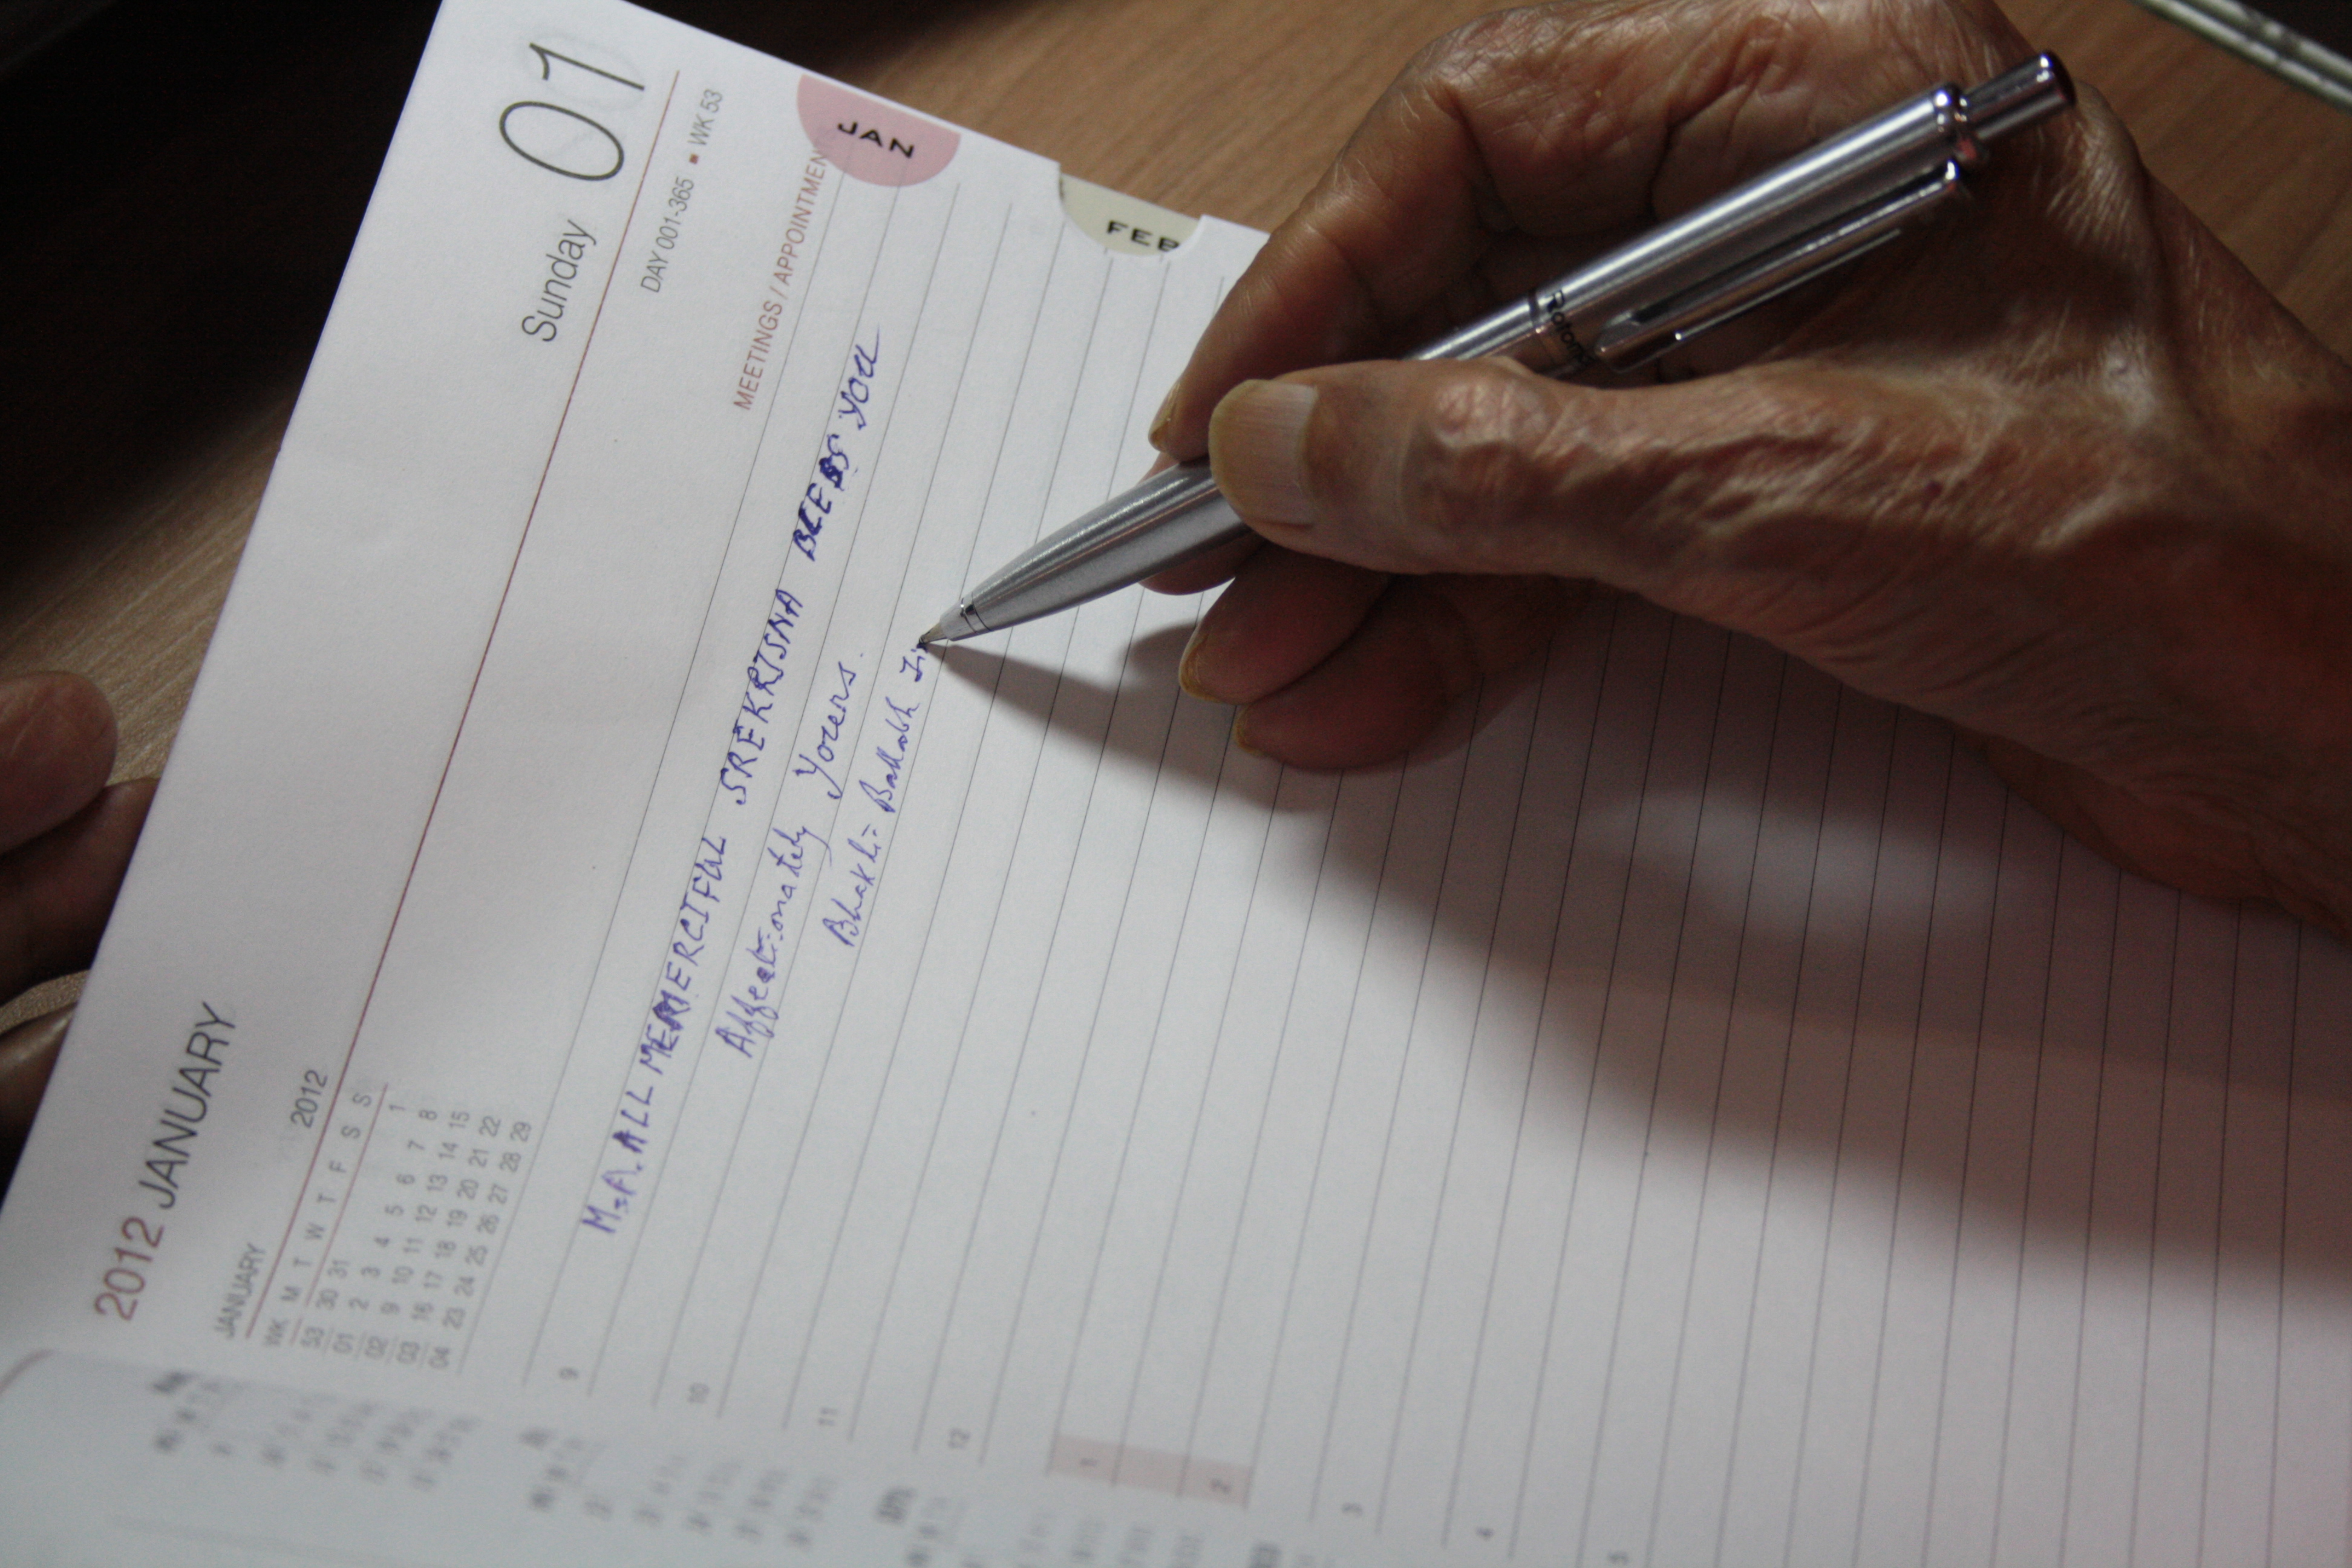 2012 JANUARY
Sunday 01
JANUARY 2012
DAY 001-365 ▪ WK 53
WK M T W T F S S
53 30 31 1
01 2 3 4 5 6 7 8
02 9 10 11 12 13 14 15
03 16 17 18 19 20 21 22
04 23 24 25 26 27 28 29
MEETINGS / APPOINTMEN
JAN
FEB
9
ALL MERCIFUL SREKRISNA BLESS YOU
10
Affectionately Yours.
11
Bhakti Ballabh
12
1
2
3
4
5
Rotoma